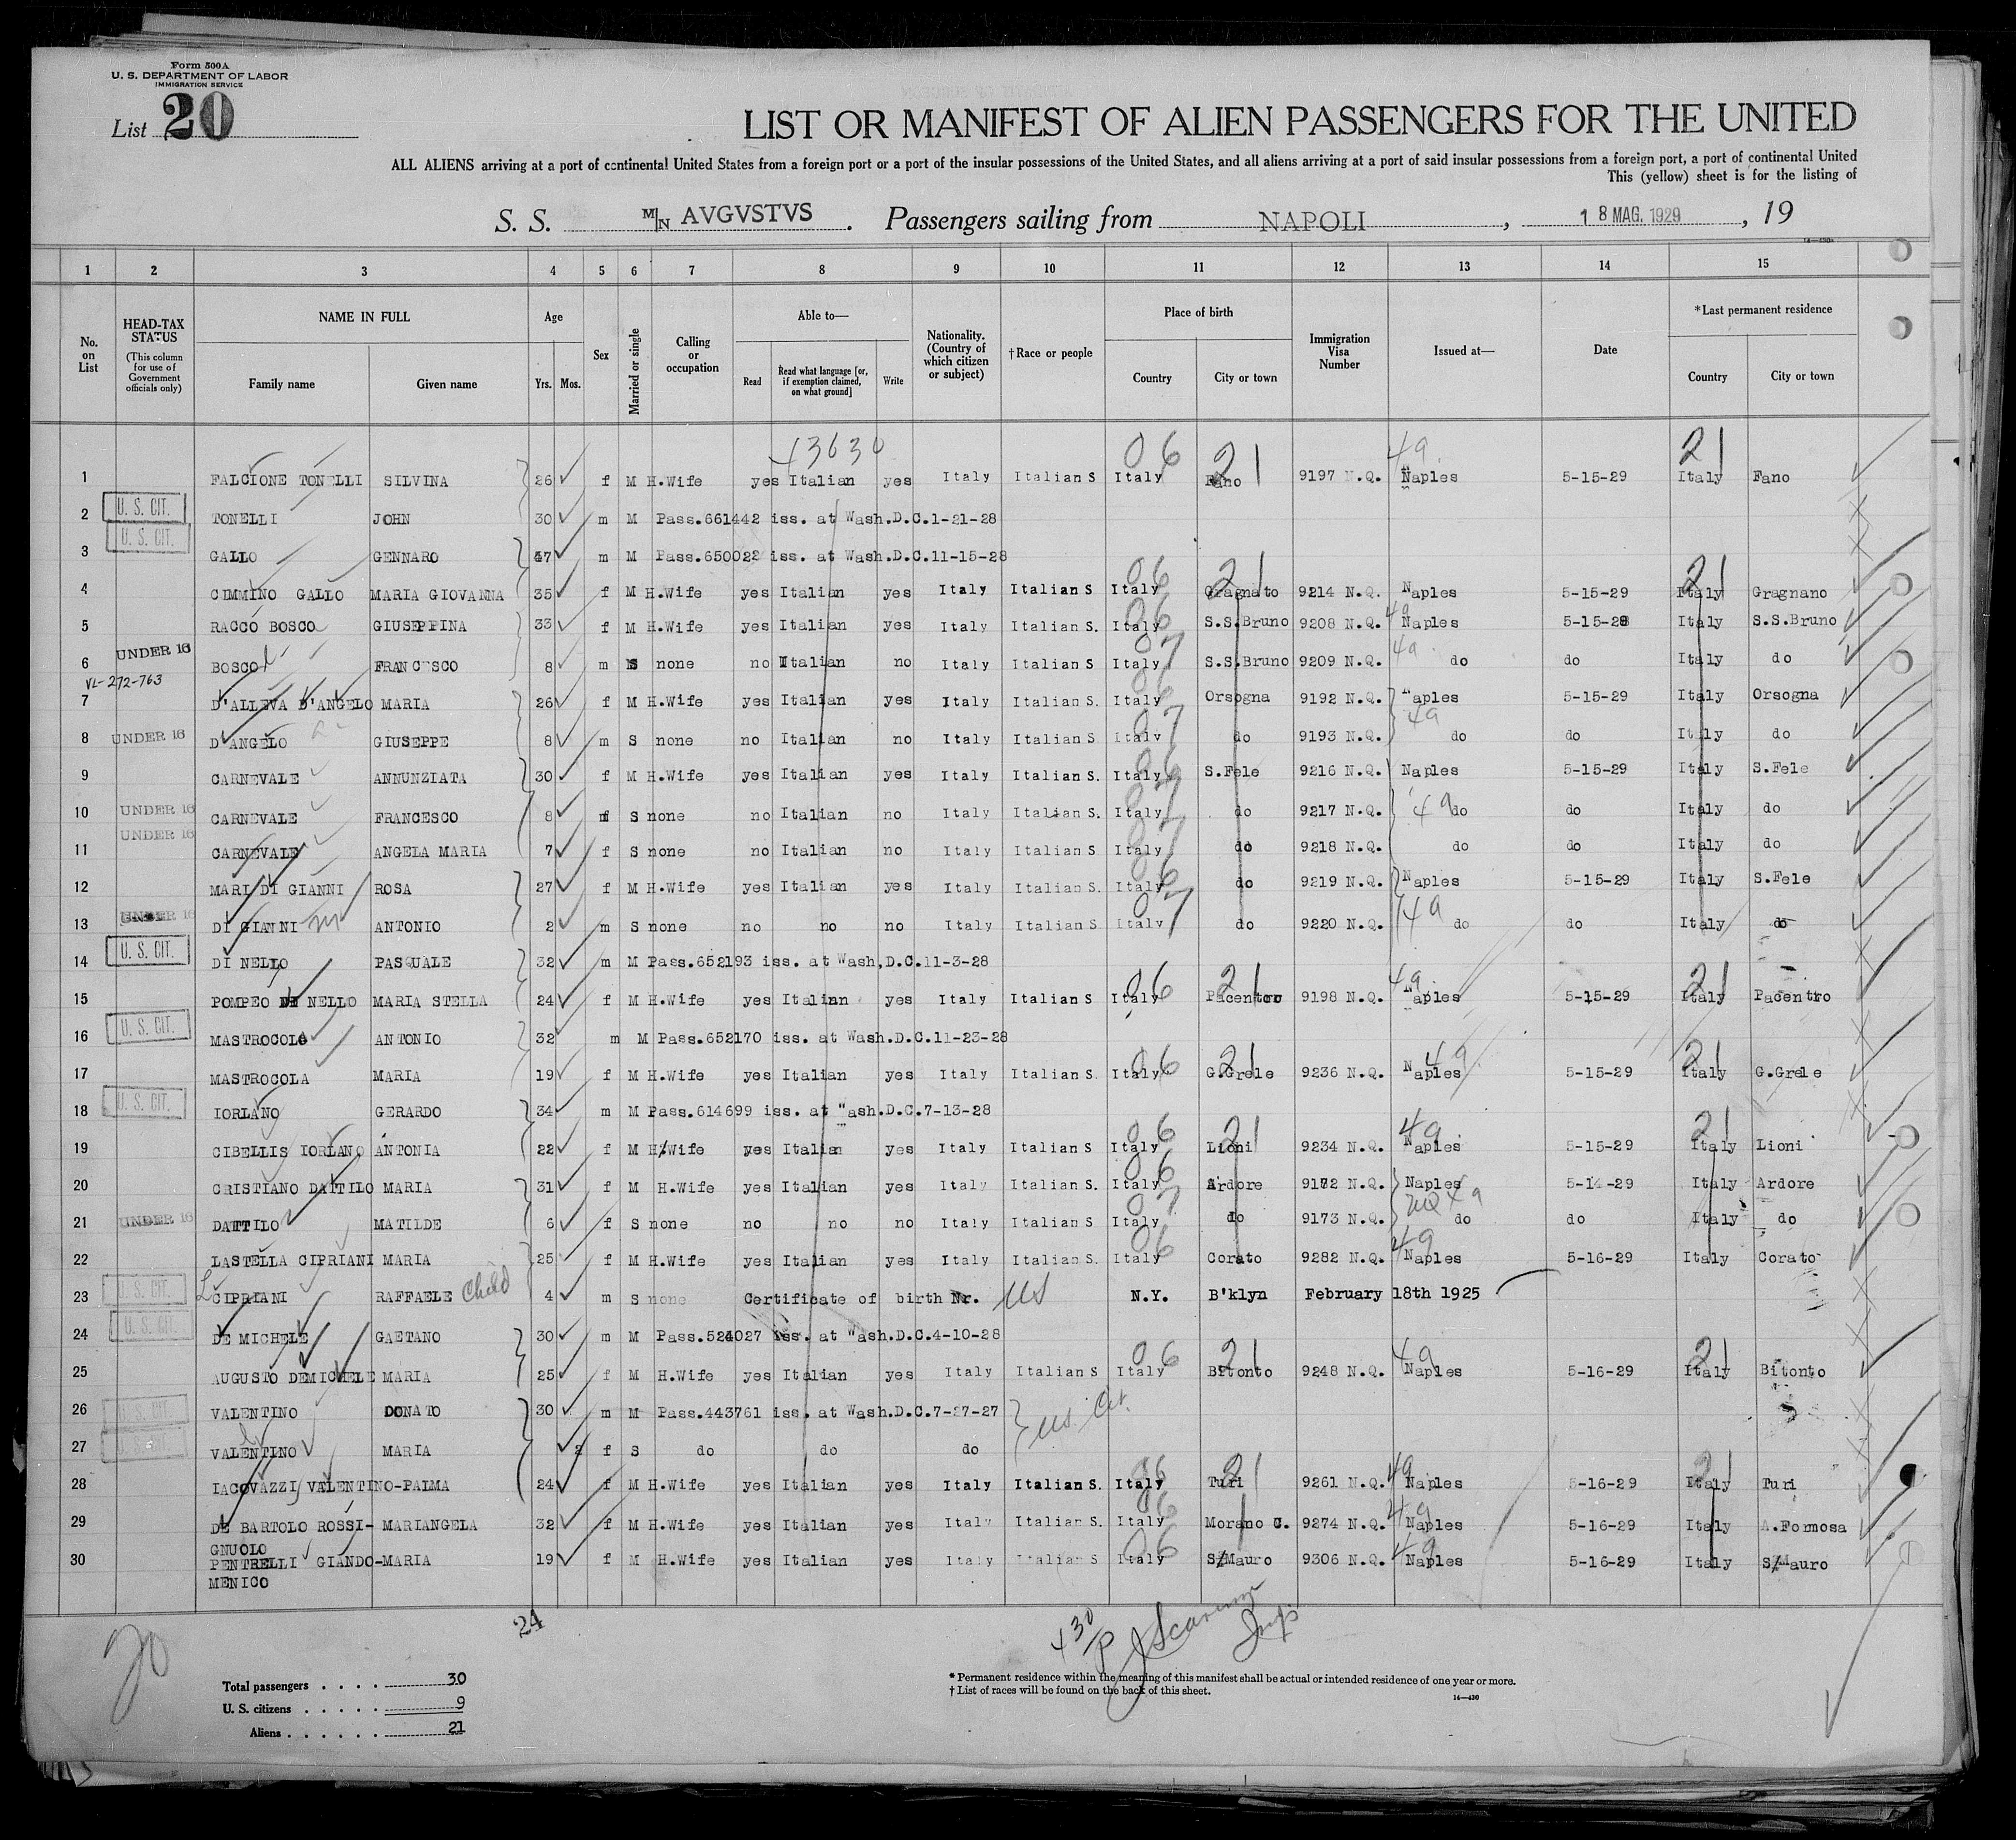 Form 500A
U. S. DEPARTMENT OF LABOR
IMMIGRATION SERVICE
List 20
LIST OR MANIFEST OF ALIEN PASSENGERS FOR THE UNITED
ALL ALIENS arriving at a port of continental United States from a foreign port or a port of the insular possessions of the United States, and all aliens arriving at a port of said insular possessions from a foreign port, a port of continental United
This (yellow) sheet is for the listing of
S. S. M/N AVGVSTVS. Passengers sailing from NAPOLI, 18 MAG. 1929, 19
1 2 3 4 5 6 7 8 9 10 11 12 13 14 15
No. on List
HEAD-TAX STATUS (This column for use of Government officials only)
NAME IN FULL Family name Given name
Age Yrs. Mos.
Sex
Married or single
Calling or occupation
Able to— Read Read what language [or, if exemption claimed, on what ground] Write
Nationality. (Country of which citizen or subject)
†Race or people
Place of birth Country City or town
Immigration Visa Number
Issued at—
Date
*Last permanent residence Country City or town
43630 06 21 49 21
1 FALCIONE TONELLI SILVINA 26 f M H.Wife yes Italian yes Italy Italian S Italy Fano 9197 N.Q. Naples 5-15-29 Italy Fano
2 U. S. CIT. TONELLI JOHN 30 m M Pass.661442 iss. at Wash.D.C.1-21-28
3 U. S. CIT. GALLO GENNARO 47 m M Pass.650022 iss. at Wash.D.C.11-15-28
06 21 21
4 CIMMINO GALLO MARIA GIOVANNA 35 f M H.Wife yes Italian yes Italy Italian S Italy Gragnato 9214 N.Q. Naples 5-15-29 Italy Gragnano
5 RACCO BOSCO GIUSEPPINA 33 f M H.Wife yes Italian yes Italy Italian S. Italy 06 S.S.Bruno 9208 N.Q. 49 Naples 5-15-29 Italy S.S.Bruno
6 UNDER 16 BOSCO FRANCESCO 8 m S none no Italian no Italy Italian S Italy 07 S.S.Bruno 9209 N.Q. 49 do do Italy do
VL-272-763
7 D'ALLEVA D'ANGELO MARIA 26 f M H.Wife yes Italian yes Italy Italian S. Italy 06 Orsogna 9192 N.Q. Naples 5-15-29 Italy Orsogna
8 UNDER 16 D'ANGELO GIUSEPPE 8 m S none no Italian no Italy Italian S Italy 07 do 9193 N.Q. 49 do do Italy do
9 CARNEVALE ANNUNZIATA 30 f M H.Wife yes Italian yes Italy Italian S. Italy 06 S.Fele 9216 N.Q. Naples 5-15-29 Italy S.Fele
10 UNDER 16 CARNEVALE FRANCESCO 8 m S none no Italian no Italy Italian S. Italy 07 do 9217 N.Q. 49 do do Italy do
11 UNDER 16 CARNEVALE ANGELA MARIA 7 f S none no Italian no Italy Italian S Italy 07 do 9218 N.Q. do do Italy do
12 MARI DI GIANNI ROSA 27 f M H.Wife yes Italian yes Italy Italian S. Italy 06 do 9219 N.Q. Naples 5-15-29 Italy S.Fele
13 UNDER 16 DI GIANNI m ANTONIO 2 m S none no no no Italy Italian S Italy 07 do 9220 N.Q. 49 do do Italy do
14 U. S. CIT. DI NELLO PASQUALE 32 m M Pass.652193 iss. at Wash,D.C.11-3-28
15 POMPEO DI NELLO MARIA STELLA 24 f M H.Wife yes Italian yes Italy Italian S Italy 06 21 Pacentro 9198 N.Q. 49 Naples 5-15-29 21 Italy Pacentro
16 U. S. CIT. MASTROCOLA ANTONIO 32 m M Pass.652170 iss. at Wash.D.C.11-23-28
17 MASTROCOLA MARIA 19 f M H.Wife yes Italian yes Italy Italian S. Italy 06 21 G.Grele 9236 N.Q. 49 Naples 5-15-29 21 Italy G.Grele
18 U. S. CIT. IORLANO GERARDO 34 m M Pass.614699 iss. at "ash.D.C.7-13-28
19 CIBELLIS IORLANO ANTONIA 22 f M H/Wife yes Italian yes Italy Italian S Italy 06 21 Lioni 9234 N.Q. 49 Naples 5-15-29 21 Italy Lioni
20 CRISTIANO DATTILO MARIA 31 f M H.Wife yes Italian yes Italy Italian S. Italy 06 Ardore 9172 N.Q. Naples 5-14-29 Italy Ardore
21 UNDER 16 DATTILO MATILDE 6 f S none no no no Italy Italian S Italy 07 do 9173 N.Q. NQ 49 do do Italy do
22 LASTELLA CIPRIANI MARIA 25 f M H.Wife yes Italian yes Italy Italian S. Italy 06 Corato 9282 N.Q. 49 Naples 5-16-29 Italy Corato
23 U. S. CIT. CIPRIANI RAFFAELE Child 4 m S none Certificate of birth Nr. US N.Y. B'klyn February 18th 1925
24 U. S. CIT. DE MICHELE GAETANO 30 m M Pass.524027 iss. at Wash.D.C.4-10-28
25 AUGUSTO DEMICHELE MARIA 25 f M H.Wife yes Italian yes Italy Italian S Italy 06 21 Bitonto 9248 N.Q. 49 Naples 5-16-29 21 Italy Bitonto
26 U. S. CIT. VALENTINO DONATO 30 m M Pass.443761 iss. at Wash.D.C.7-27-27 US Cit.
27 U. S. CIT. VALENTINO MARIA 2 f S do do do
28 IACOVAZZI VALENTINO-PALMA 24 f M H.Wife yes Italian yes Italy Italian S. Italy 06 21 Turi 9261 N.Q. 49 Naples 5-16-29 21 Italy Turi
29 DE BARTOLO ROSSI- MARIANGELA 32 f M H.Wife yes Italian yes Italy Italian S. Italy 06 Morano C. 9274 N.Q. 49 Naples 5-16-29 Italy A.Formosa
GNUOLO
30 PENTRELLI GIANDO-MARIA 19 f M H.Wife yes Italian yes Italy Italian S Italy 06 S/Mauro 9306 N.Q. 49 Naples 5-16-29 Italy S/Mauro
MENICO
24
20
430/P
Total passengers . . . . 30
U. S. citizens . . . . . 9
Aliens . . . . . . 21
* Permanent residence within the meaning of this manifest shall be actual or intended residence of one year or more.
† List of races will be found on the back of this sheet.
14—430